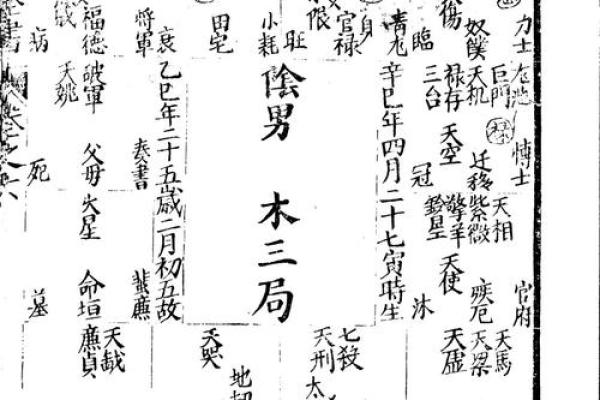 力士
博士
官府
巨門
天相
天馬
奴僕
天机
遷移
紫微
疾厄
天梁
傷
祿存
天空
擎羊
天使
天虛
臨
三台
冠
鈴星
沐
青龍
辛巳年四月二十七寅時生
身
官禄
旺
七殺
天刑
小耗
陰男 木三局
地
田宅
天哭
衰
乙巳年二十五歲二月初五故
將軍
奏書
蜚廉
福德
破軍
父母
火星
命垣
廉貞
天鉞
天姚
病
死
墓
卷之六